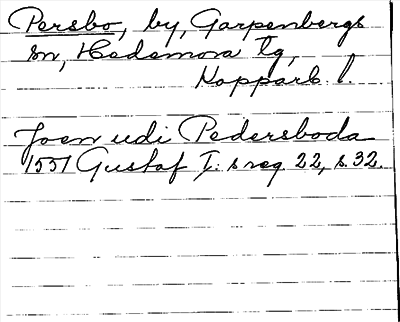 Persbo, by, Garpenbergs
sn, Hedemora tg,
Kopparb. l.
Joen udi Pedersboda
1551 Gustaf I:s reg. 22, s. 32.